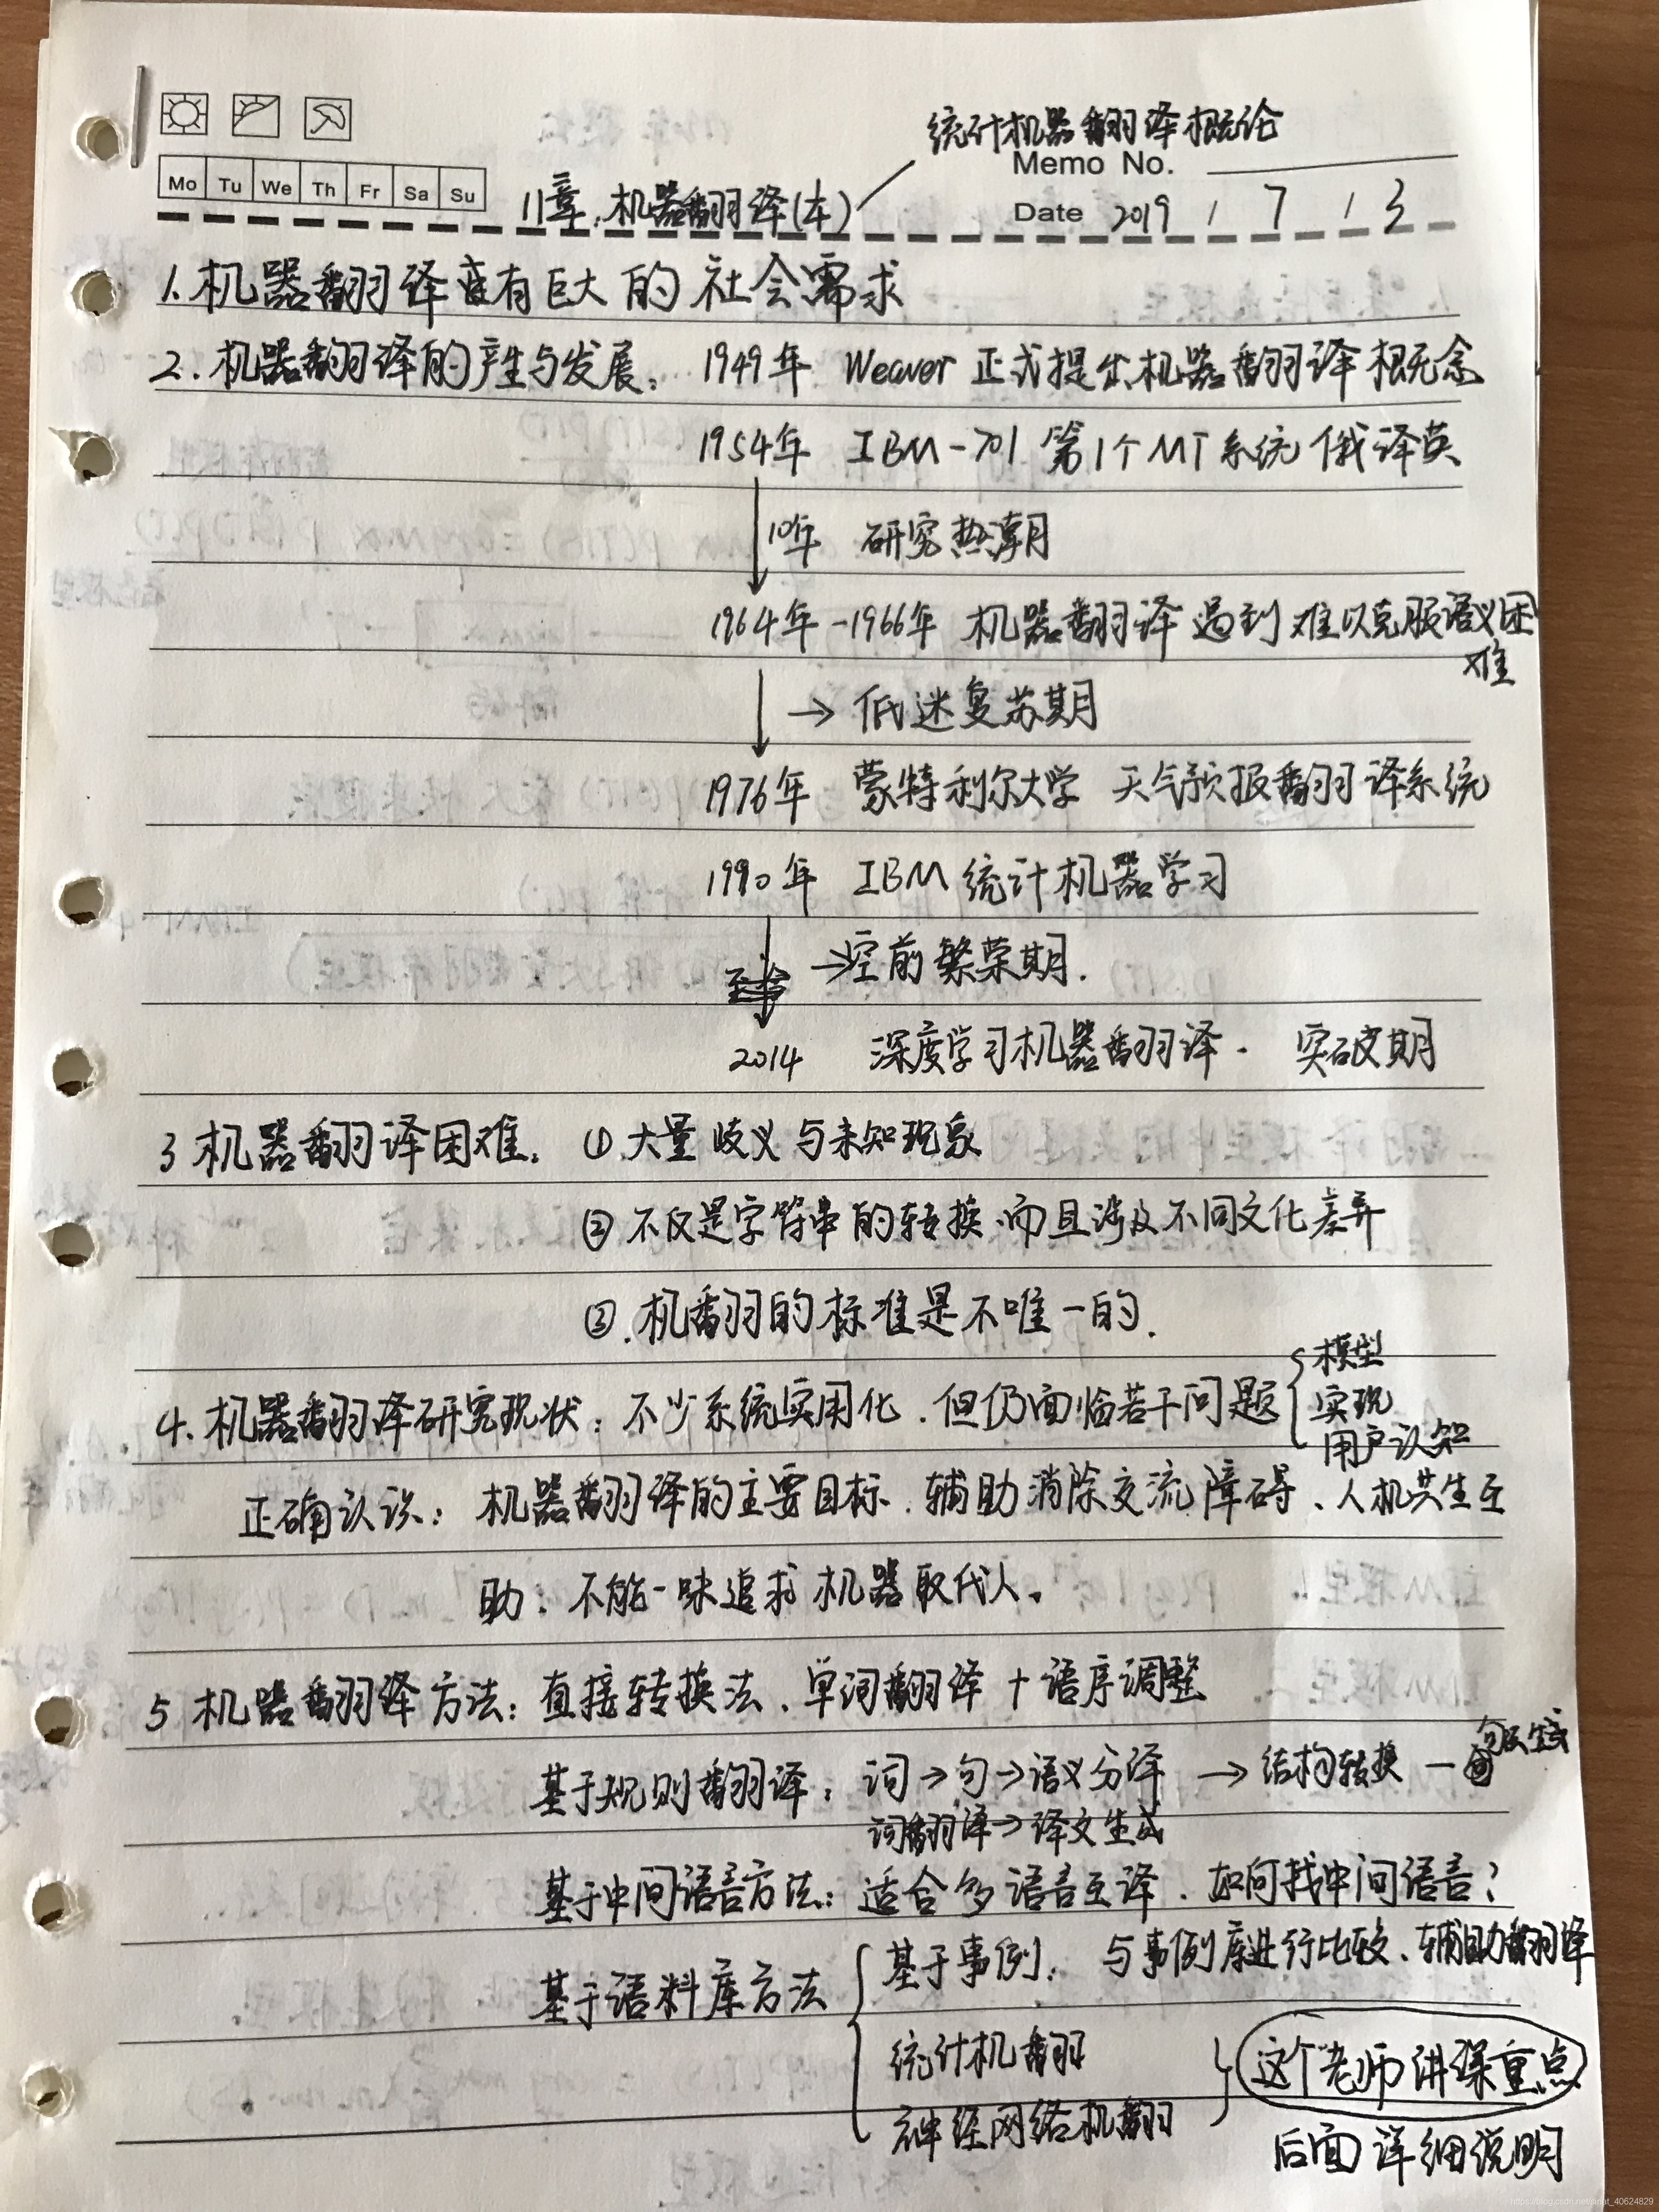 统计机器翻译概论
Memo No.
Mo Tu We Th Fr Sa Su
11章.机器翻译(本)
Date 2019 / 7 / 3
1.机器翻译有巨大的社会需求
2.机器翻译的产生与发展: 1949年 Weaver 正式提出机器翻译概念
1954年 IBM-701 第1个MT系统 俄译英
10年 研究热潮
1964年-1966年 机器翻译遇到难以克服语义困
难
→ 低迷复苏期
1976年 蒙特利尔大学 天气预报翻译系统
1990年 IBM 统计机器学习
→空前繁荣期.
2014 深度学习机器翻译. 突破期
3 机器翻译困难. ①大量歧义与未知现象
② 不仅是字符串的转换.而且涉及不同文化差异
③.机翻的标准是不唯一的.
4.机器翻译研究现状: 不少系统实用化.但仍面临若干问题
模型
实现
用户认知
正确认识: 机器翻译的主要目标.辅助消除交流障碍、人机共生互
助. 不能一味追求机器取代人.
5 机器翻译方法: 直接转换法、单词翻译+语序调整
基于规则翻译: 词→句→语义分译 →结构转换 — 句法生成
词翻译→译文生成
基于中间语言方法: 适合多语言互译.如何找中间语言?
基于语料库方法
基于事例: 与事例库进行比较、辅助翻译
统计机翻
神经网络机翻
这个老师讲课重点
后面详细说明
https://blog.csdn.net/sinat_40624829